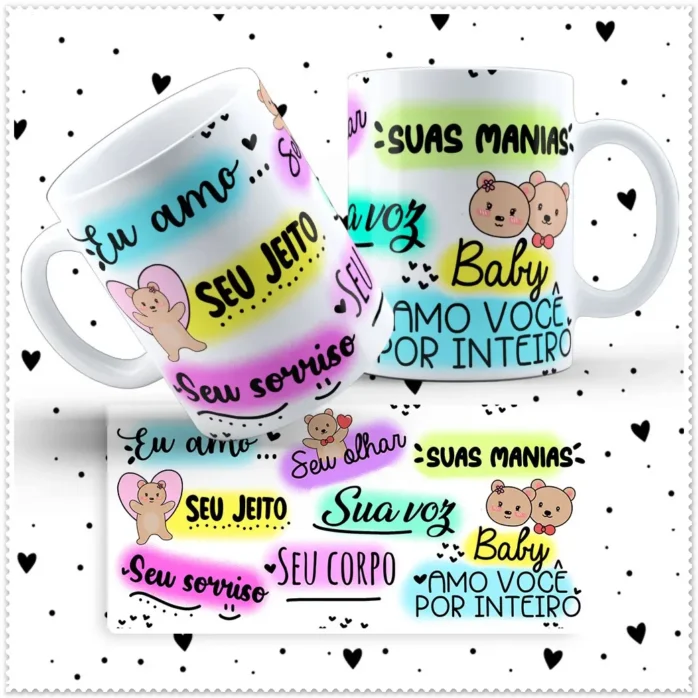 Eu amo...
SEU JEITO
Seu sorriso
SUAS MANIAS
a voz
Baby
AMO VOCÊ
POR INTEIRO
Eu amo...
Seu olhar
SUAS MANIAS
SEU JEITO
Sua voz
Baby
Seu sorriso
SEU CORPO
AMO VOCÊ
POR INTEIRO